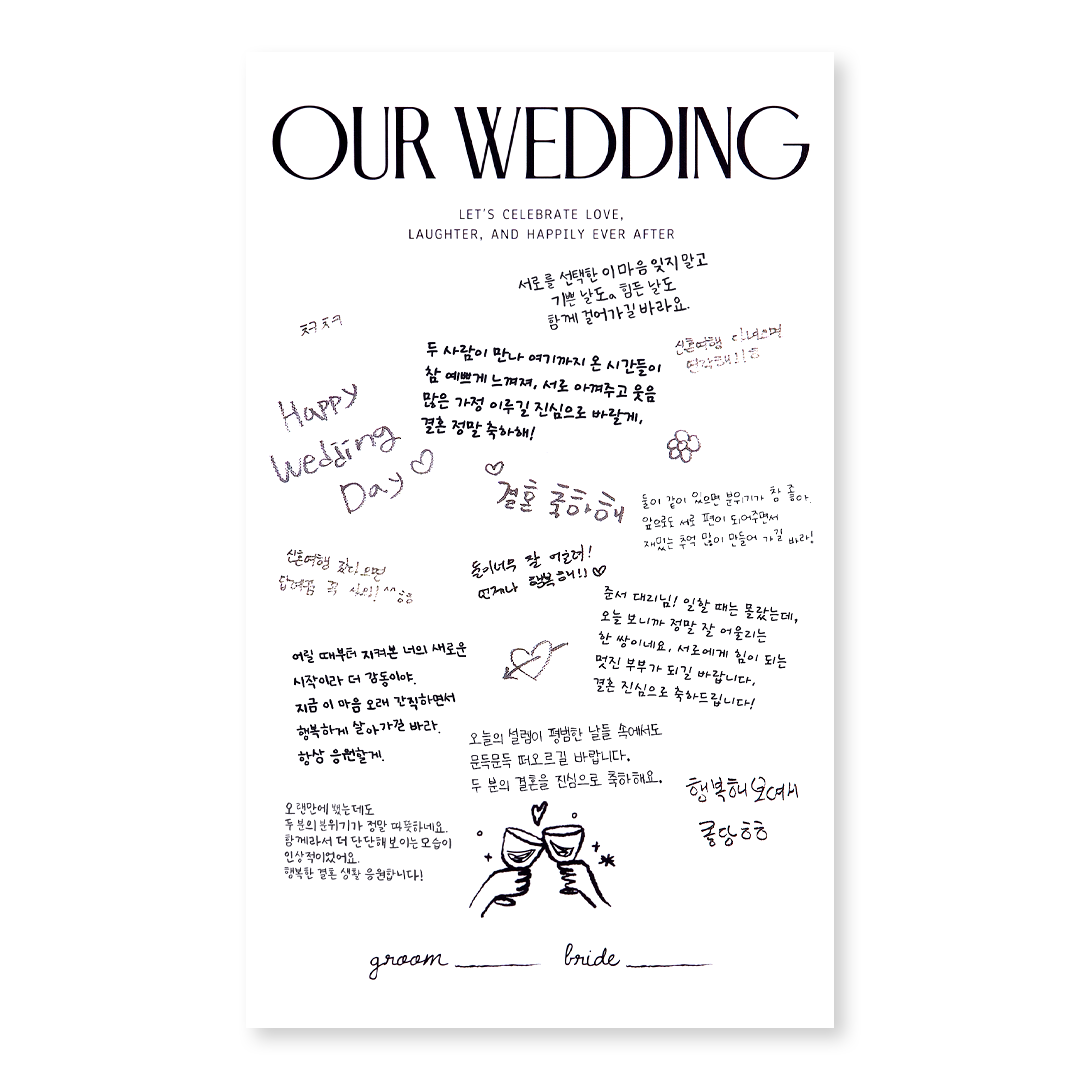 OUR WEDDING
LET'S CELEBRATE LOVE,
LAUGHTER, AND HAPPILY EVER AFTER
서로를 선택한 이 마음 잊지 말고
기쁜 날도 힘든 날도
함께 걸어가길 바라요.
ㅊㅋㅊㅋ
신혼여행 다녀오면
연락해!!ㅎ
두 사람이 만나 여기까지 온 시간들이
참 예쁘게 느껴져, 서로 아껴주고 웃음
많은 가정 이루길 진심으로 바랄게,
결혼 정말 축하해!
Happy
Wedding
Day♡
결혼 축하해
둘이 같이 있으면 분위기가 참 좋아.
앞으로도 서로 편이 되어주면서
재밌는 추억 많이 만들어 가길 바라!
신혼여행 갔다오면
꼭 ^^ㅎㅎ
둘이너무 잘 어울려!
언제나 행복해!! ♡
준서 대리님! 일할 때는 몰랐는데,
오늘 보니까 정말 잘 어울리는
한 쌍이네요, 서로에게 힘이 되는
멋진 부부가 되길 바랍니다,
결혼 진심으로 축하드립니다!
어릴 때부터 지켜본 너의 새로운
시작이라 더 감동이야.
지금 이 마음 오래 간직하면서
행복하게 살아가길 바라.
항상 응원할게.
오늘의 설렘이 평범한 날들 속에서도
문득문득 떠오르길 바랍니다.
두 분의 결혼을 진심으로 축하해요.
행복해보여서
좋당ㅎㅎ
오랜만에 뵀는데도
두 분의 분위기가 정말 따뜻하네요.
함께라서 더 단단해 보이는 모습이
인상적이었어요.
행복한 결혼 생활 응원합니다!
groom bride